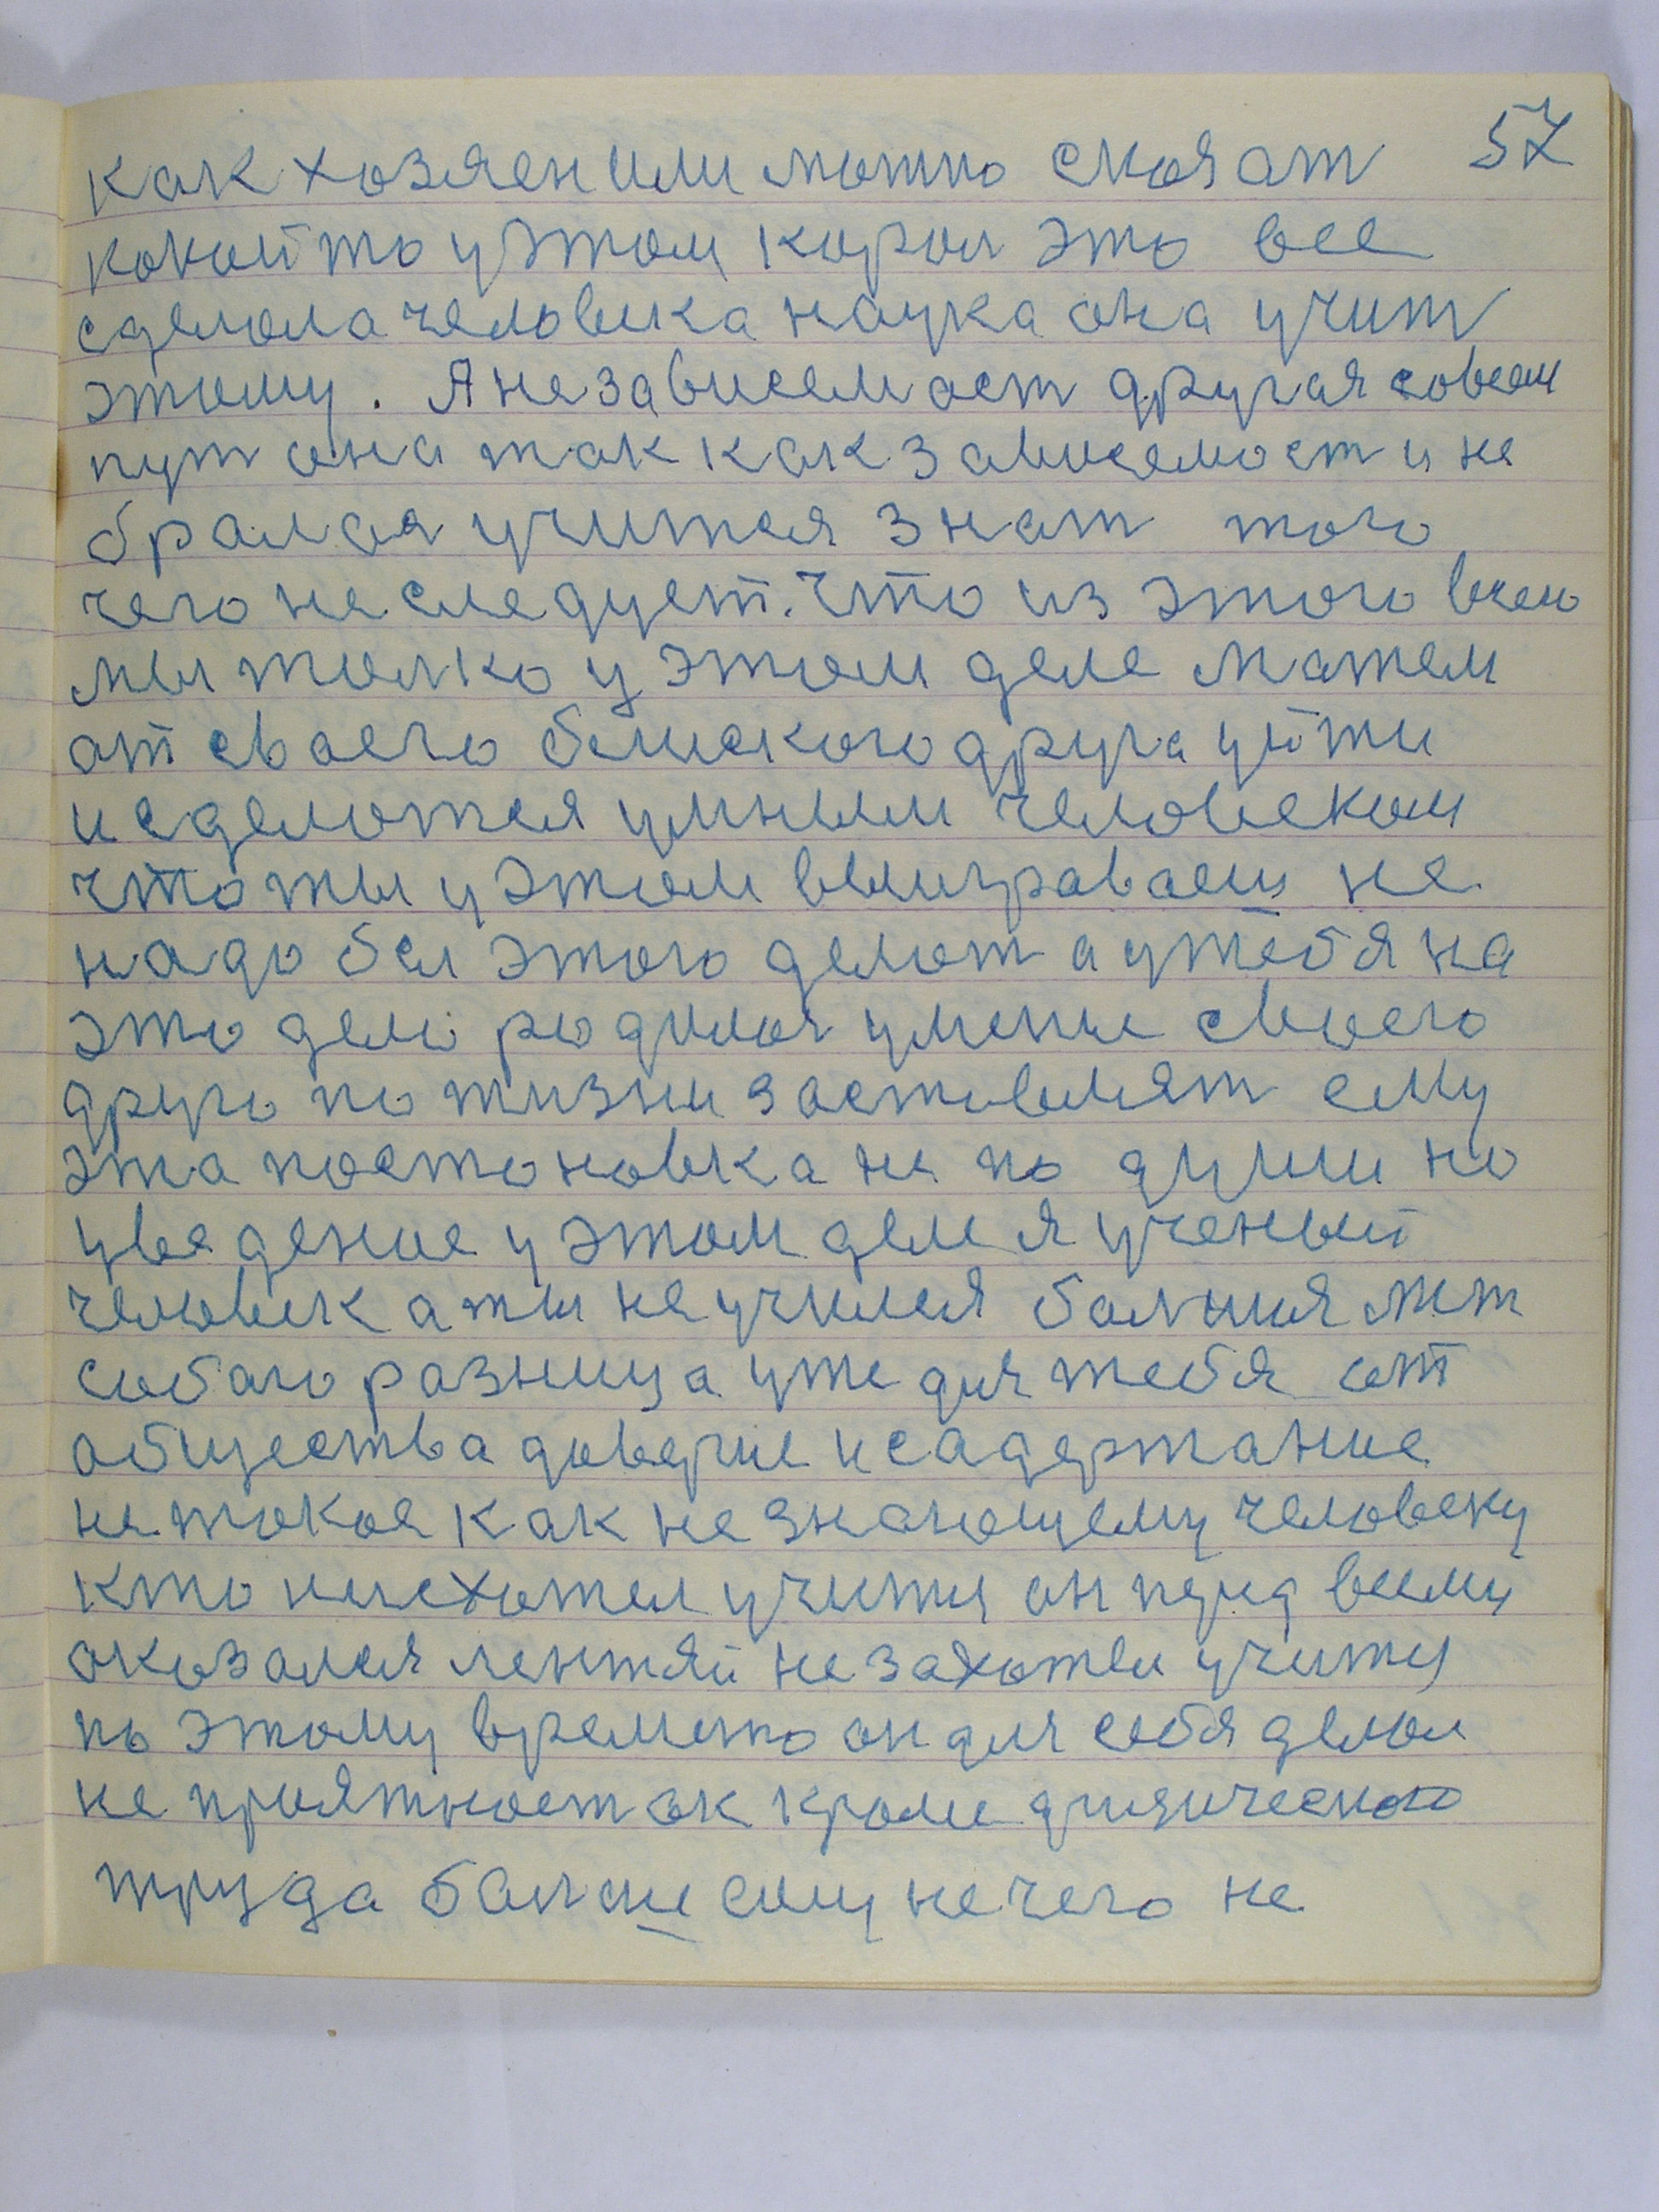 57
как хозяен или можно сказат
какой то у этом корол это все
сделола человека наука она учит
этому. А независемаст другая совсем
пут она так как зависемост и не
бралася учится знат того
чего не следует. Что из этого всего
мы толко у этом деле можем
от своего блиского друга уйти
и сделотся умным человеком
что ты у этом выиграваеш не
надо бы этого делот а у тебя на
это дело родилоя умение своего
друга по жизни заставлят ему
эта постоновка не по души но
уведение у этом деле я ученый
человек а ты не учился болшия меж
собаю разница уже для тебя от
общества доверие и садержание
не токое как не знающему человеку
кто не схотел учится он перед всему
оказался лентяй не захотел учится
по этому время то он для себя делол
не приятност ок кроме физическаго
труда болше ему нечего не